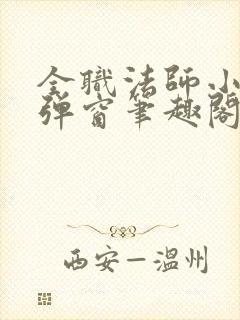 全職法師小
弹窗筆趣閣
西安—温州